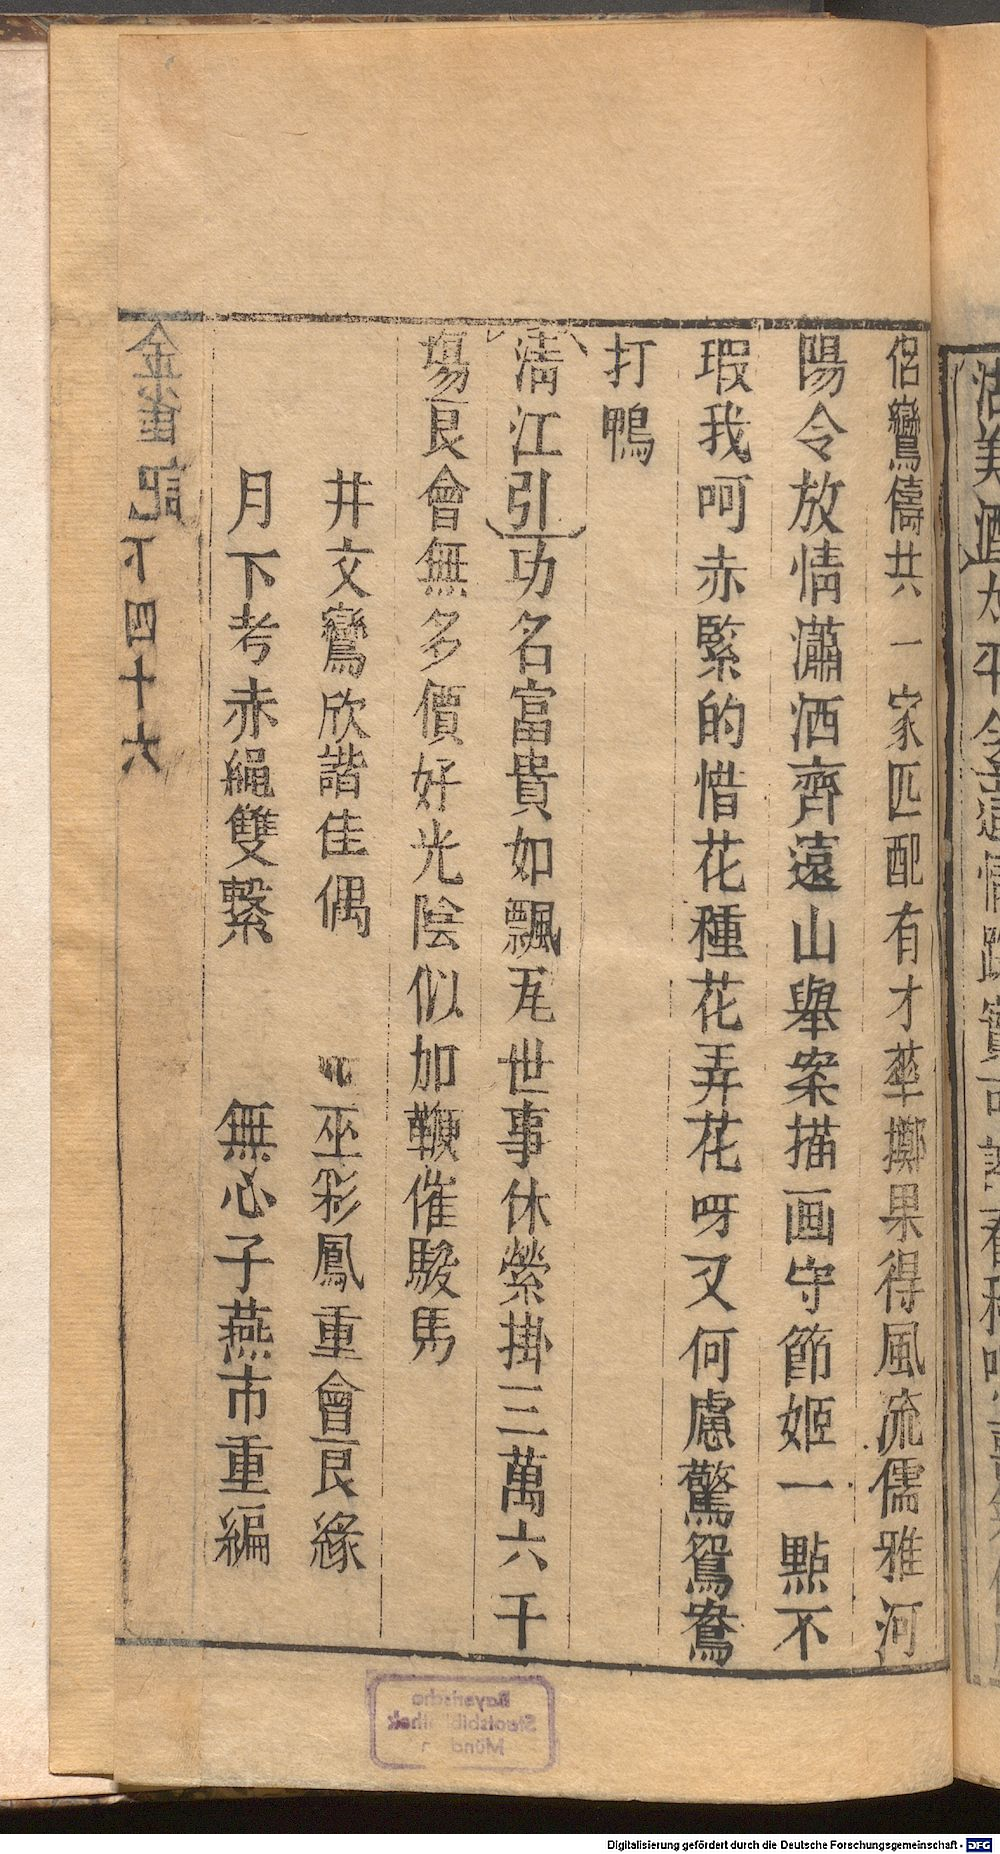 侶鸞儔共一家匹配有才華擲果得風流儒雅河
陽令放情瀟洒齊遠山舉案描画守節姬一點不
瑕我呵赤緊的惜花種花弄花呀又何慮驚鴛鴦
打鴨
清江引功名富貴如飄瓦世事休縈掛三萬六千
塲良會無多價好光陰似加鞭催駿馬
井文鸞欣諧佳偶 巫彩鳳重會良緣
月下考赤繩雙繫 無心子燕市重編
金雀記
下四十六
Bayerische
Staatsbibliothek
München
Digitalisierung gefördert durch die Deutsche Forschungsgemeinschaft - DFG